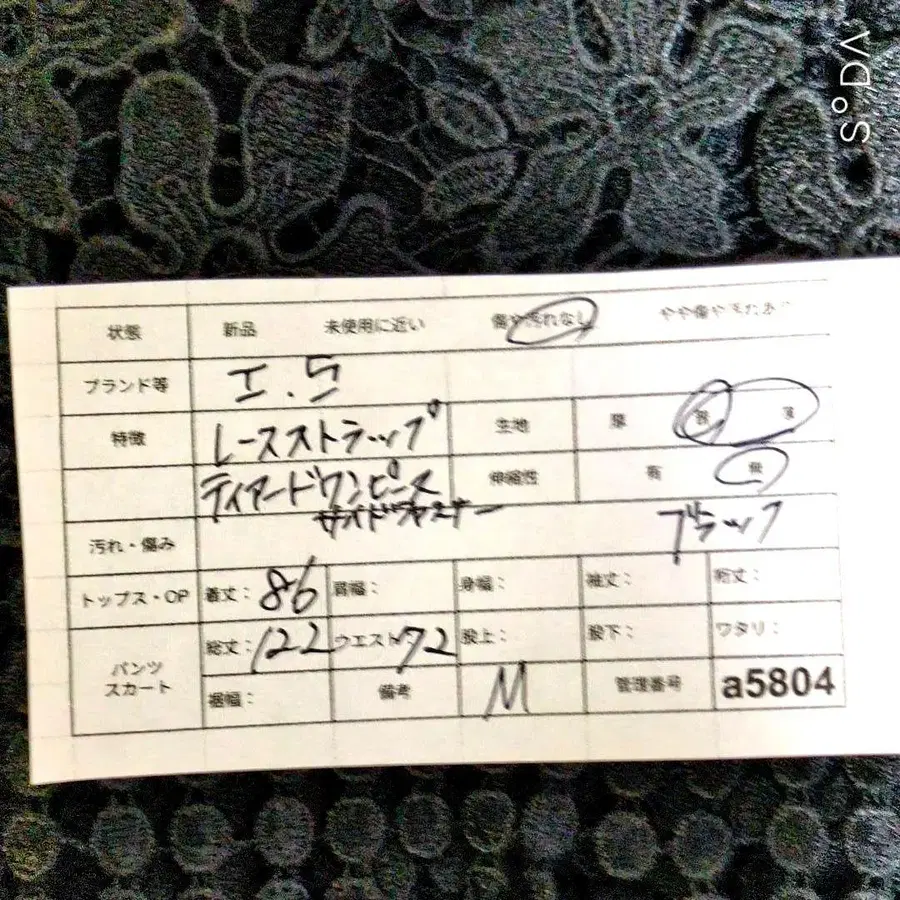 SODA
状態 新品 未使用に近い 傷や汚れなし やや傷や汚れあり
ブランド等 エ.5
特徴 レースストラップ 生地 厚 薄
ティアードワンピース 伸縮性 有 無
サイドファスナー
汚れ・傷み ブラック
トップス・OP 着丈: 86 肩幅: 身幅: 袖丈: 裄丈:
パンツ スカート 総丈: 122 ウエスト 72 股上: 股下: ワタリ:
裾幅: 備考 M 管理番号 a5804